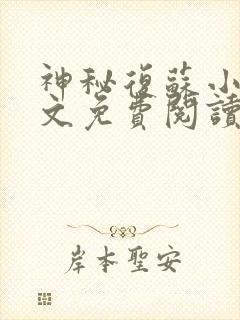 神秘復蘇小
文免費閱讀
岸本聖安